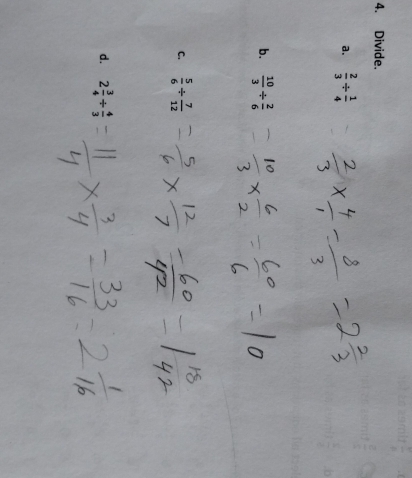 4. Divide.
a. 2/3 ÷ 1/4 = 2/3 × 4/1 = 8/3 = 2 2/3
b. 10/3 ÷ 2/6 = 10/3 × 6/2 = 60/6 = 10
c. 5/6 ÷ 7/12 = 5/6 × 12/7 = 60/42 = 1 18/42
d. 2 3/4 ÷ 4/3 = 11/4 × 3/4 = 33/16 = 2 1/16